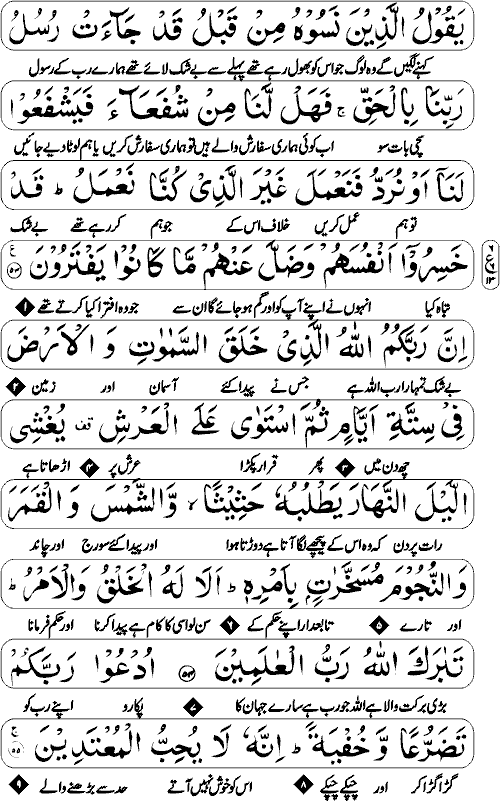 يَقُوۡلُ الَّذِيۡنَ نَسُوۡهُ مِنۡ قَبۡلُ قَدۡ جَآءَتۡ رُسُلُ
کہنے لگیں گے وہ لوگ جو اس کو بھول رہے تھے پہلے سے بے شک لائے تھے ہمارے رب کے رسول
رَبِّنَا بِالۡحَـقِّ‌ ۚ فَهَلۡ لَّـنَا مِنۡ شُفَعَآءَ فَيَشۡفَعُوۡا
سچی بات سو اب کوئی ہماری سفارش والے ہیں تو ہماری سفارش کریں یا ہم لوٹا دیے جائیں
لَـنَاۤ اَوۡ نُرَدُّ فَنَعۡمَلَ غَيۡرَ الَّذِىۡ كُنَّا نَـعۡمَلُ‌ؕ قَدۡ
تو ہم عمل کریں خلاف اس کے جو ہم کر رہے تھے بے شک
خَسِرُوۡۤا اَنۡفُسَهُمۡ وَضَلَّ عَنۡهُمۡ مَّا كَانُوۡا يَفۡتَرُوۡنَ ﴿۵۳﴾ ع
۶ ع ۱۳
تباہ کیا انہوں نے اپنے آپ کو اور گم ہو جائے گا ان سے جو وہ افترا کیا کرتے تھے ۱
اِنَّ رَبَّكُمُ اللّٰهُ الَّذِىۡ خَلَقَ السَّمٰوٰتِ وَ الۡاَرۡضَ
بے شک تمہارا رب اللہ ہے جس نے پیدا کئے آسمان اور زمین ۲
فِىۡ سِتَّةِ اَيَّامٍ ثُمَّ اسۡتَوٰى عَلَى الۡعَرۡشِ قف يُغۡشِى
چھ دن میں ۳ پھر قرار پکڑا عرش پر ۴ اڑھاتا ہے
الَّيۡلَ النَّهَارَ يَطۡلُبُهٗ حَثِيۡثًا ۙ وَّالشَّمۡسَ وَالۡقَمَرَ
رات پر دن کہ وہ اس کے پیچھے لگا آتا ہے دوڑتا ہوا اور پیدا کئے سورج اور چاند
وَالنُّجُوۡمَ مُسَخَّرٰتٍۢ بِاَمۡرِهٖ ؕ اَلَا لَـهُ الۡخَـلۡقُ وَالۡاَمۡرُ‌ ؕ
اور تارے ۵ تابعدار اپنے حکم کے ۶ سن لو اسی کا کام ہے پیدا کرنا اور حکم فرمانا
تَبٰرَكَ اللّٰهُ رَبُّ الۡعٰلَمِيۡنَ ﴿۵۴﴾ اُدۡعُوۡا رَبَّكُمۡ
بڑی برکت والا ہے اللہ جو رب ہے سارے جہان کا ۷ پکارو اپنے رب کو
تَضَرُّعًا وَّخُفۡيَةً‌ ؕ اِنَّهٗ لَا يُحِبُّ الۡمُعۡتَدِيۡنَ‌ ﴿۵۵﴾ ج
گڑگڑا کر اور چپکے چپکے ۸ اس کو خوش نہیں آتے حد سے بڑھنے والے ۹